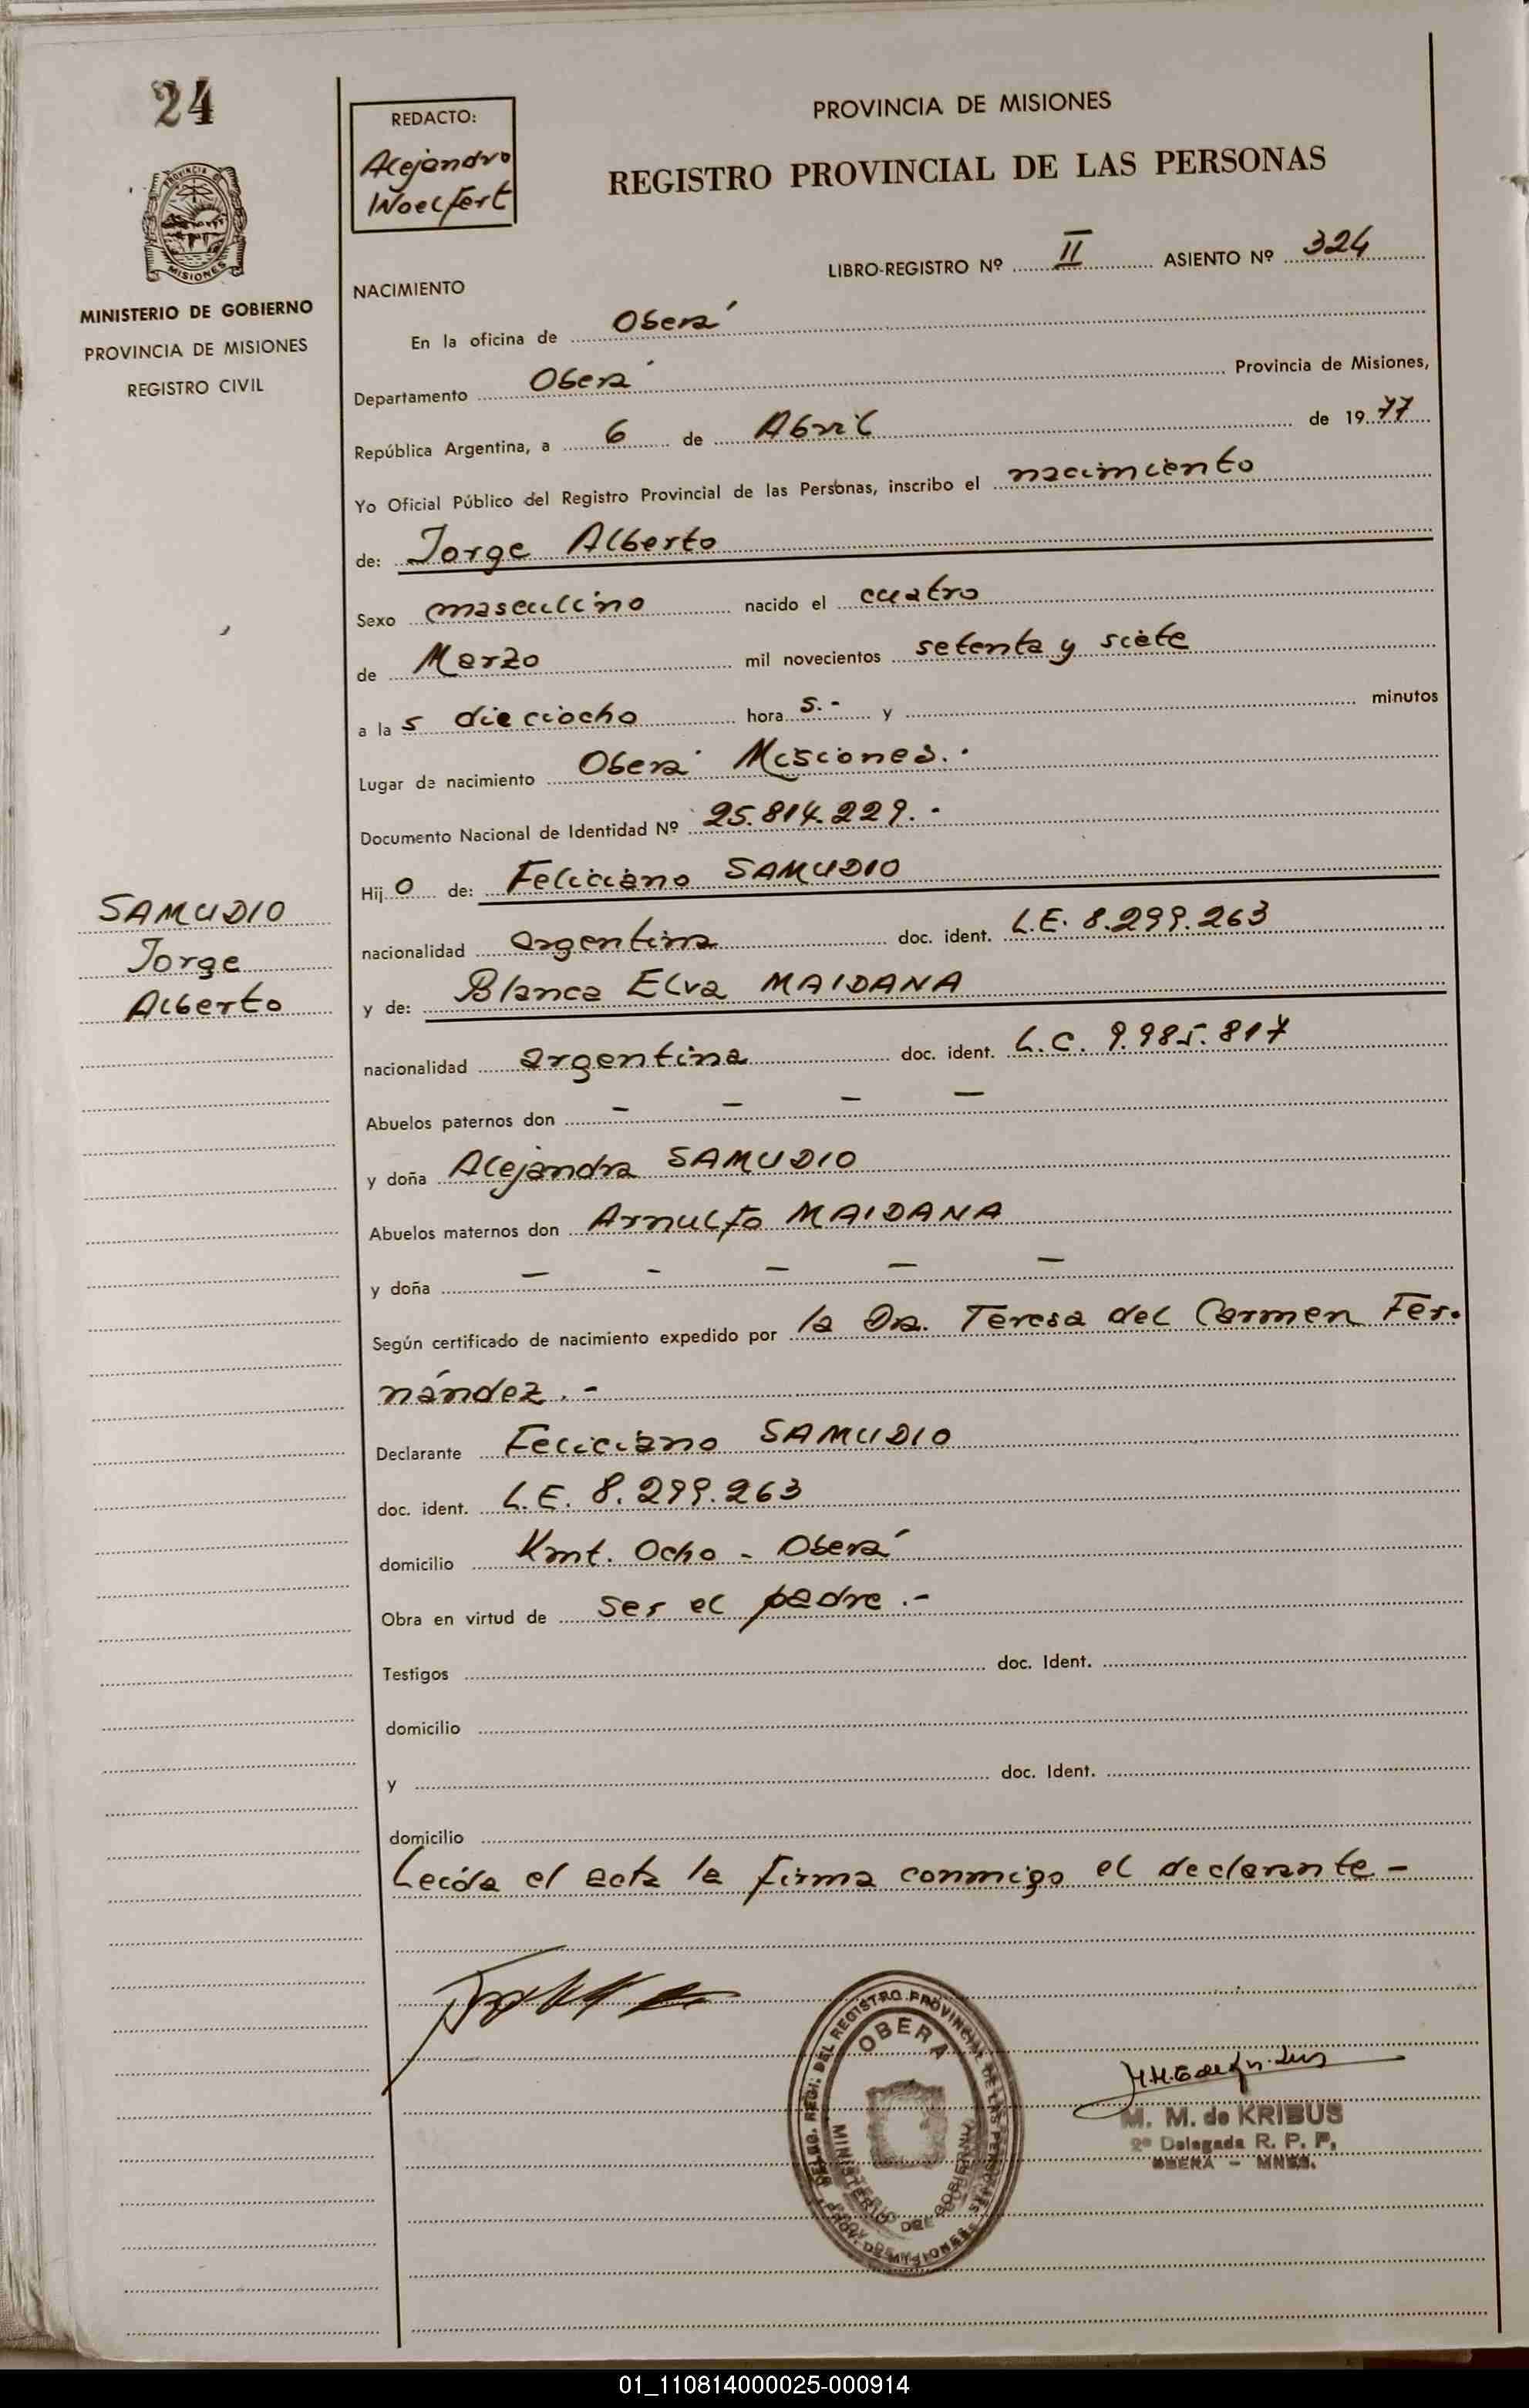 24
PROVINCIA DE
MISIONES
MINISTERIO DE GOBIERNO
PROVINCIA DE MISIONES
REGISTRO CIVIL
REDACTO:
Alejandro
Woelfert
PROVINCIA DE MISIONES
REGISTRO PROVINCIAL DE LAS PERSONAS
LIBRO-REGISTRO Nº II ASIENTO Nº 324
NACIMIENTO
En la oficina de Oberá
Departamento Oberá Provincia de Misiones,
República Argentina, a 6 de Abril de 1977
Yo Oficial Público del Registro Provincial de las Personas, inscribo el nacimiento
de: Jorge Alberto
Sexo masculino nacido el cuatro
de Marzo mil novecientos setenta y siete
a la s dieciocho hora s.- y minutos
Lugar de nacimiento Oberá Misiones.-
Documento Nacional de Identidad Nº 25.814.229.-
Hij o de: Feliciano SAMUDIO
nacionalidad argentina doc. ident. L.E. 8.299.263
y de: Blanca Elva MAIDANA
nacionalidad argentina doc. ident. L.C. 9.985.817
Abuelos paternos don - - - -
y doña Alejandra SAMUDIO
Abuelos maternos don Arnulfo MAIDANA
y doña - - - - -
Según certificado de nacimiento expedido por la Dra. Teresa del Carmen Fer-
nández.-
Declarante Feliciano SAMUDIO
doc. ident. L.E. 8.299.263
domicilio Kmt. Ocho - Oberá
Obra en virtud de ser el padre.-
Testigos doc. Ident.
domicilio
y doc. Ident.
domicilio
Leída el acta la firma conmigo el declarante-
SAMUDIO
Jorge
Alberto
DELEG. REGI. DEL REGISTRO PROVINCIAL DE LAS PERSONAS
OBERA
MINISTERIO DE GOBIERNO
PROV. DE MISIONES
M. M. de KRIBUS
2ª Delegada R. P. P.
OBERA - MNES.
01_110814000025-000914